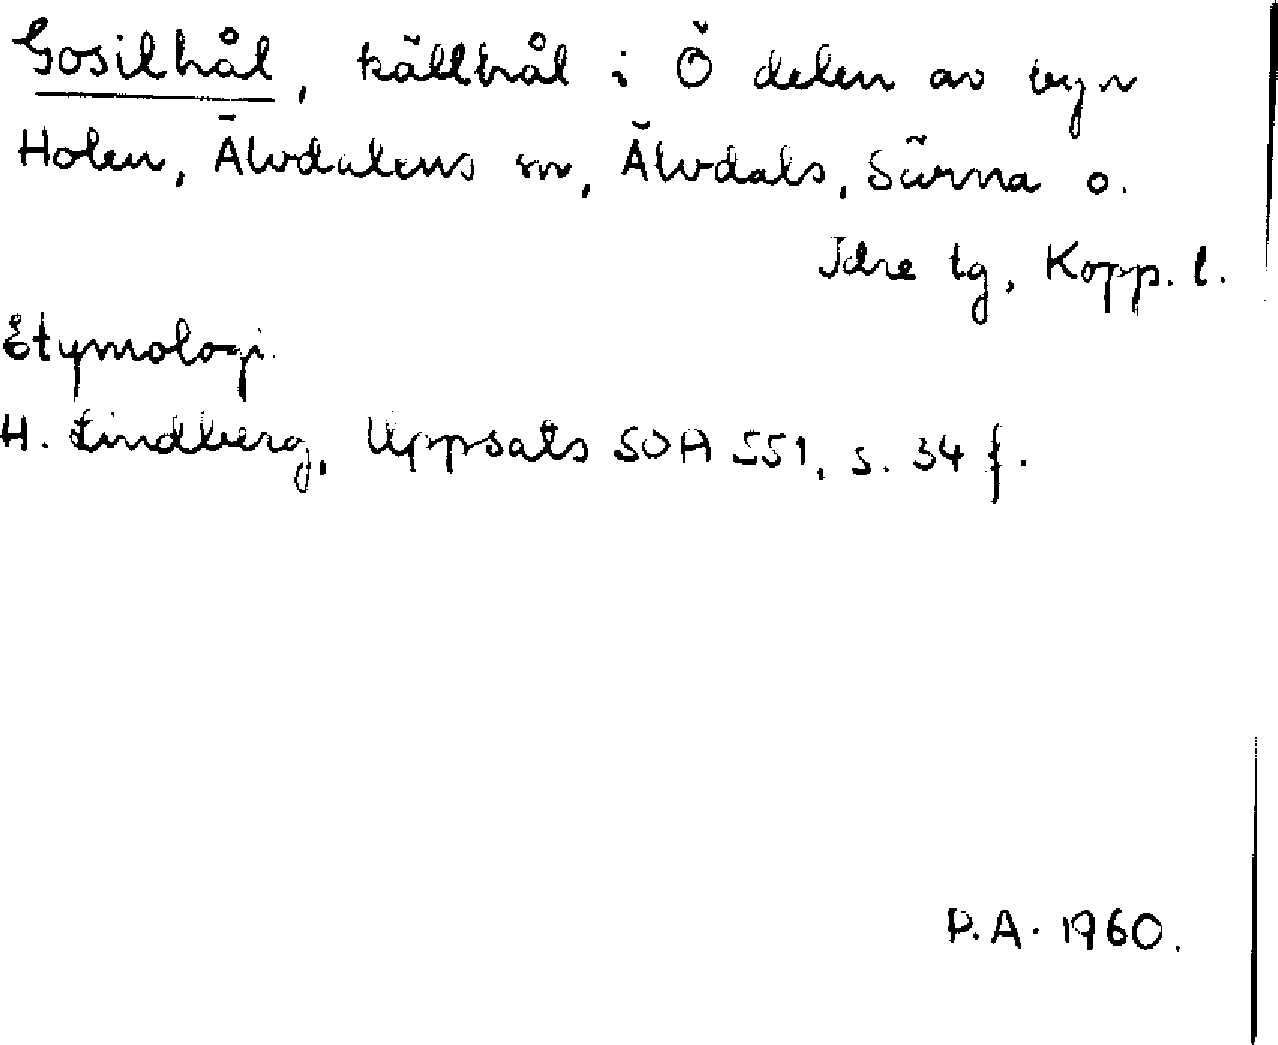 Gosilhål, källhål i Ö delen av byn
Holen, Älvdalens sn, Älvdals, Särna o.
Idre tg, Kopp. l.
Etymologi.
H. Lindberg, Uppsats SOA 551, s. 34 f.
P.A. 1960.